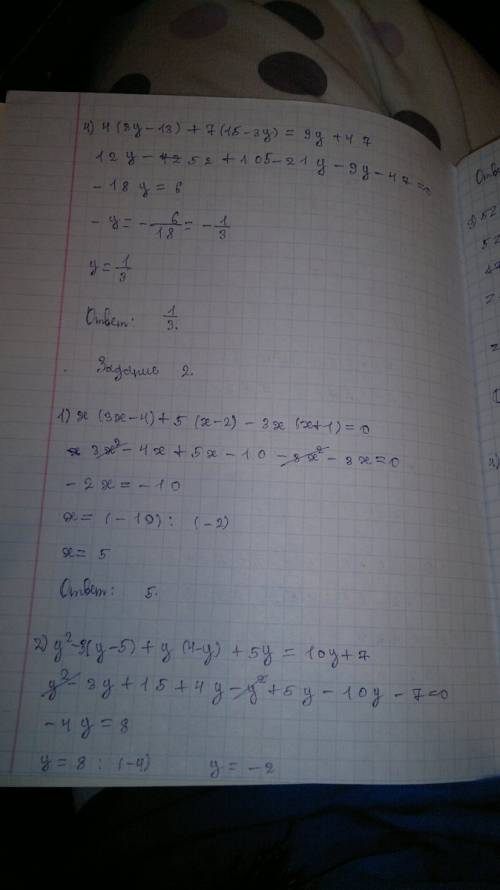 4) 4(3y-13)+7(15-3y)=9y+47
12y-52+105-21y-9y-47=0
-18y=6
-y=-6/18=-1/3
y=1/3
Ответ: 1/3.
Задание 2.
1) x(3x-4)+5(x-2)-3x(x+1)=0
3x²-4x+5x-10-3x²-3x=0
-2x=-10
x=(-10):(-2)
x=5
Ответ: 5.
2) y²-3(y-5)+y(4-y)+5y=10y+7
y²-3y+15+4y-y²+5y-10y-7=0
-4y=8
y=8:(-4) y=-2
Ответ
52